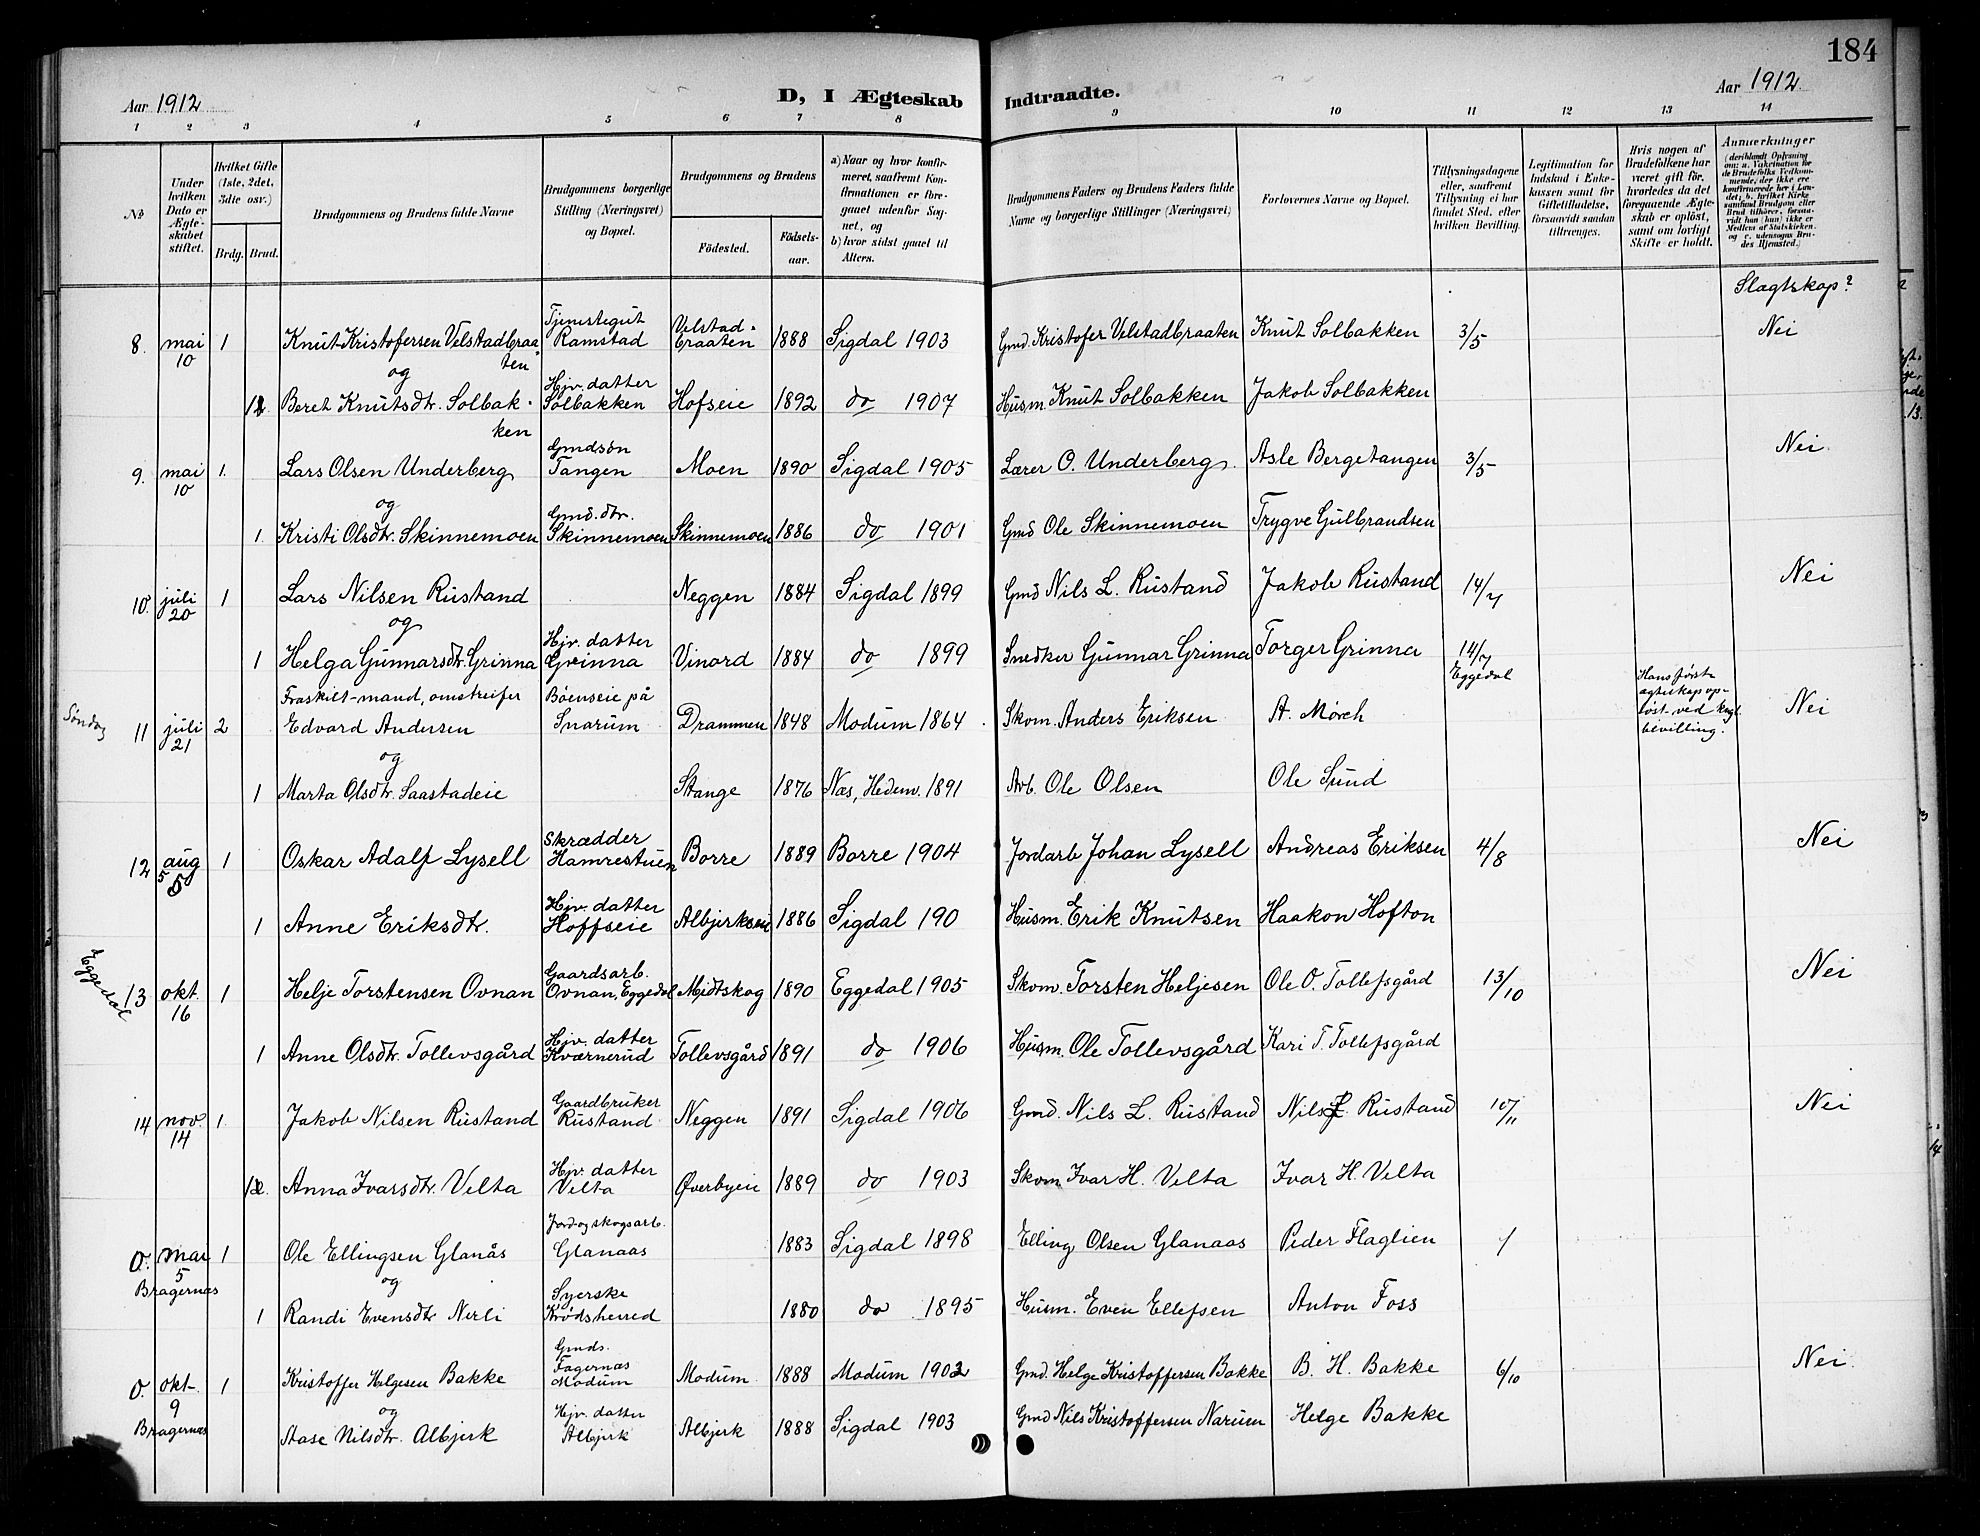 184
Aar 1912
D, I Ægteskab
Indtraadte.
Aar 1912
1 2 3 4 5 6 7 8 9 10 11 12 13 14
No
Under hvilken Dato er Ægteskabet stiftet.
Hvilket Gifte (1ste, 2det, 3die osv.)
Brdg. Brud.
Brudgommens og Brudens fulde Navne
Brudgommens borgerlige Stilling (Næringsvei) og Bopæl.
Brudgommens og Brudens
Födested.
Födsels-aar.
a) Naar og hvor konfirmeret, saafremt Konfirmationen er foregaaet udenfor Sognet, og
b) hvor sidst gaaet til Alters.
Brudgommens Faders og Brudens Faders fulde Navne og borgerlige Stillinger (Næringsvei)
Forlovernes Navne og Bopæl.
Tillysningsdagene eller, saafremt Tillysning ei har fundet Sted, efter hvilken Bevilling.
Legitimation for Indskud i Enkekassen samt for Giftetilladelse, forsaavidt saadan tiltrænges.
Hvis nogen af Brudefolkene har været gift för, hvorledes da det foregaaende Ægteskab er oplöst, samt om lovligt Skifte er holdt.
Anmærkninger (deriblandt Oplysning om: a. Vakcination for de Brudefolks Vedkommende, der ikke ere konfirmerede her i Landet; b. hvilket Kirkesamfund Brudgom eller Brud tilhörer, forsaavidt han (hun) ikke er Medlem af Statskirken. og c. udensogns Brudes Hjemsted.)
Slagtskap?
8. mai 10 1 Knut Kristofersen Velstadbraaten Tjenestegut Ramstad Velstadbraaten 1888 Sigdal 1903 Gmd. Kristofer Velstadbraaten Knut Solbakken 3/5 Nei
og
1 Beret Knutsdtr. Solbakken Hjv. datter Solbakken Hofseie 1892 do 1907 Husm. Knut Solbakken Jakob Solbakken
9. mai 10 1. Lars Olsen Underberg Gmdsøn Tangen Moen 1890 Sigdal 1905 Lærer O. Underberg. Asle Bergetangen 3/5 Nei.
og
1. Kristi Olsdtr. Skinnemoen Gmd. dtr. Skinnemoen Skinnemoen 1886 do 1901 Gmd Ole Skinnemoen Trygve Gulbrandsen
10. juli 20 1 Lars Nilsen Rustand Neggen 1884 Sigdal 1899 Gmd Nils L. Rustand Jakob Rustand 14/7 Nei
og
1 Helga Gunnarsdtr. Grinna Hjv. datter Greinna Vinord 1884 do 1899 Snedker Gunnar Grinna Torger Grinna 14/7 Eggedal
Søndag 11 juli 21 2 Fraskilt-mand, omstreifer Edvard Andersen Böenseie på Snarum Drammen 1848 Modum 1864. Skom. Anders Eriksen A. Mörch Hans første ægteskap opløst ved kngl. bevilling. Nei
og
1 Marta Olsdtr. Saastadeie Stange 1876 Næs, Hedem. 1891 Arb. Ole Olsen Ole Sund
12 aug 5 5 1 Oskar Adalf Lysell Skrædder Hamrestuen Borre 1889 Borre 1904 Jordarb Johan Lysell Andreas Eriksen 4/8 Nei
1 Anne Eriksdtr. Hjv. datter Hoffseie Albjerkseie 1886 Sigdal 190 Husm. Erik Knutsen Haakon Hofton
Eggedal 13 okt. 16 1 Helje Torstensen Ovnan Gaardsarb. Ovnan, Eggedal Midtskog 1890 Eggedal 1905 Skom. Torsten Heljesen Ole O. Tollefsgård 13/10 Nei
1 Anne Olsdtr. Tollevsgård Hjv. datter Kværnerud Tollevsgård 1891 do 1906 Husm. Ole Tollevsgård Kari T. Tollefsgård
14 nov 14 1. Jakob Nilsen Rustand Gaardbruker Rustand Neggen 1891 Sigdal 1906 Gmd. Nils L. Rustand Nils L. Rustand 10/11 Nei
1 Anna Ivarsdtr. Velta Hjv. datter Velta Øverbyeie 1889 do 1903 Skom Ivar H. Velta Ivar H. Velta
O. mai 5 Bragernæs 1 Ole Ellingsen Glanås Jord og skogsarb. Glanaas 1883 Sigdal 1898 Elling Olsen Glanaas Peder Flaglien /
og
1 Randi Evensdtr Nerli Syerske Krödsherred 1880 do 1895 Husm. Even Ellefsen Anton Foss
O. okt. 9 Bragernæs 1 Kristoffer Helgesen Bakke Gmds. Fagernæs Modum Modum 1888 Modum 1902 Gmd. Helge Kristoffersen Bakke B. H. Bakke 6/10 Nei.
og
Aase Nilsdtr. Albjerk Hjv. datter Albjerk Albjerk 1888 Sigdal 1903 Gmd Nils Kristoffersen Naruen Helge Bakke